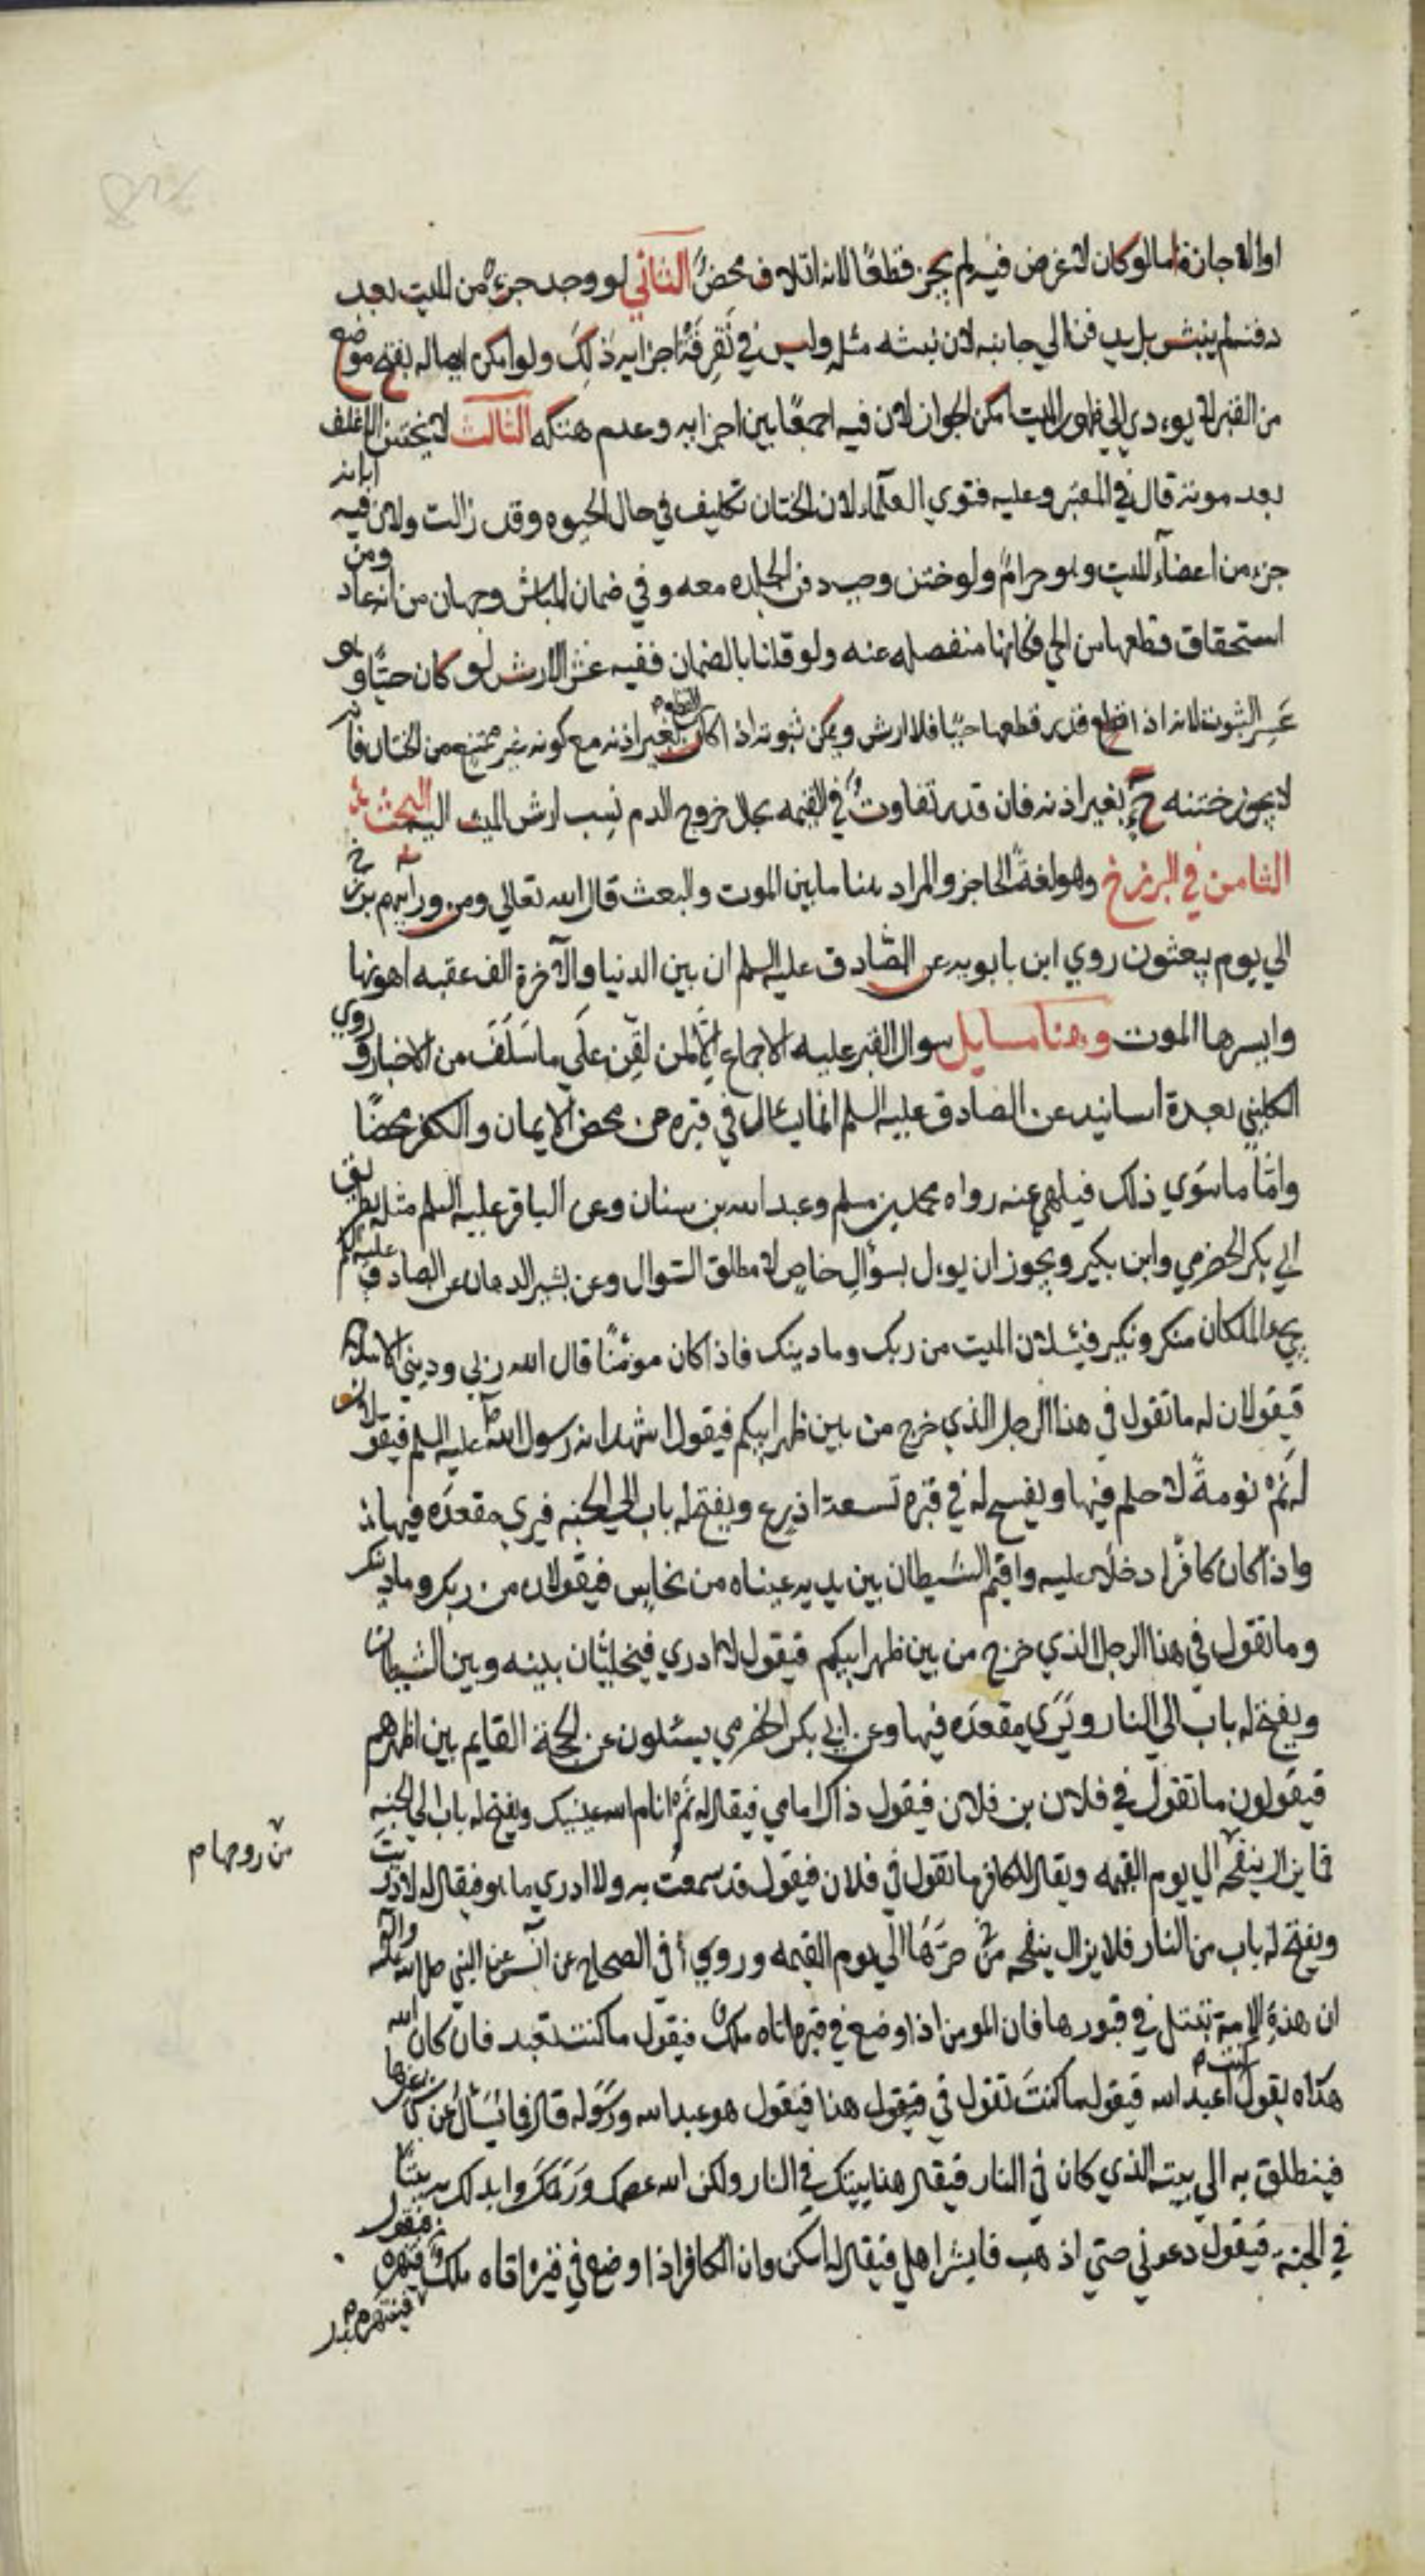 او الاجانة اما لو كان لا غرض فيه لم يجز قطعًا لانه اتلاف محضٌ الثاني لو وجد جزءٌ من الميت بعد
دفنه لم ينبش بل يدفن الي جانبه لان نبشه مثله وليس في تَفرِقَةْ اجزايه ذٰلكَ ولو امكن ايصاله بفتح موضع
من القبر لا يوءدي الي ظهور الميت امكن الجواز لان فيه جمعًا بين اجزايه وعدم هتكه الثالث لا يختن الاغلف
بعد موته قال في المعتبر وعليه فتوي العلماء لان الختان تكليف في حال الحيوه وقد زالت ولان فيه ابانه
جزء من اعضاۤء الميت وهو حرامٌ ولو ختن وجب دفن الجلده معه وفي ضمان المباشر وجهان من انه عاد ومن
استحقاق قطعها من الحي فكانها منفصله عنه ولو قلنا بالضمان ففيه عشر الارش لو كان حيًّا وهو
عَسِر الثبوت لانه اذا قدر قطعها حيًا فلا ارش ويمكن ثبوته اذا كان القطع بغير اذنه مع كونه غير ممتنع من الختان فانه
لا يجوز ختنه ح بغير اذنه فان قدر تفاوتٌ في القيمه بحال خروج الدم نسب ارش الميت اليه البحث
الثامن في البرزخ وهو لغةً الحاجز والمراد هنا ما بين الموت والبعث قال الله تعالي ومن ورآيهم برزخ
الي يوم يبعثون روي ابن بابويه عن الصّادق عليه السلم ان بين الدنيا والآخرة الف عقبه اهونها
وايسرها الموت وهنا مسايل سوال القبر عليه الاجماع اِلّا لمن لقن علَي ما سَلَفَ من الاخبار وروي
الكليني بعدة اسانيد عن الصادق عليه السلم انما يسال في قبره من محض الايمان والكفر محضًا
وامّا ما سَوي ذلك فيلهي عنه رواه محمد بن مسلم وعبد الله بن سنان وعن الباقر عليه السلم مثله بطريق
ابي بكر الحضرمي وابن بكير ويجوز ان يوءل بسؤالِ خاصٍ لا مطلق السّوال وعن بشير الدهان عن الصادق عليه السلم
يجيء الملكان منكر ونكير فيسئلان الميت من ربك وما دينك فاذا كان مؤمنًا قال الله ربي وديني الاسلام
فيقولان له ما تقول في هذا الرجل الذي خرج من بين ظهرانيكم فيقول اشهد انه رسول الله عليه السلم فيقولان
له نَمْ نومةً لا حلم فيها ويفسح له في قبره تسعة اذرع ويفتح له باب الي الجنه فيري مقعدَه فيها
واذا كان كافرًا دخلا عليه واقيم الشيطان بين يديه عيناه من نحاس فيقولان من ربك وما دينك
وما تقول في هذا الرجل الذي خرج من بين ظهرانيكم فيقول لا ادري فيخليان بينه وبين الشيطان
ويفتح له باب الي النار ويَرَي مقعدَه فيها وعن ابي بكر الحضرمي يسئلون عن الحجة القايم بين اظهرهم
فيقولون ما تقول في فلان بن فلان فيقول ذاك امامي فيقال له نَمْ انام الله عينيك ويفتح له باب الي الجنه
فما يزال ينفحه الي يوم القيمه ويقال للكافر ما تقول في فلان فيقول قد سمعت به ولا ادري ما هو فيقال له لا دريت
من روحها م
ويفتح له باب من النار فلا يزال ينفحه من حَرّهَا الي يوم القيمه وروي في الصحاح عن انس عن النبي صلى الله عليه واله
ان هذهِ الامة تبتلي في قبورها فان المومن اذا وضع في قبره اتاه ملك فيقول ما كنت تعبد فان كان الله
هداه يقول كنت اعبد الله فيقول ما كنتَ تقول في فيقول هذا فيقول هو عبد الله ورَسُوله قال فما يَسَألُ عن شي غيرها
فينطلق به الي بيته الذي كان في النار فيقال هذا بيتك في النار ولكن الله عصمك ورَحمكَ وابدلك به بيتًا
في الجنة فيقول دعوني حتي اذهب فابشر اهلي فيقال له اسكن وان الكافر اذا وضع في قبره اتاه ملك فينتهره فيقول